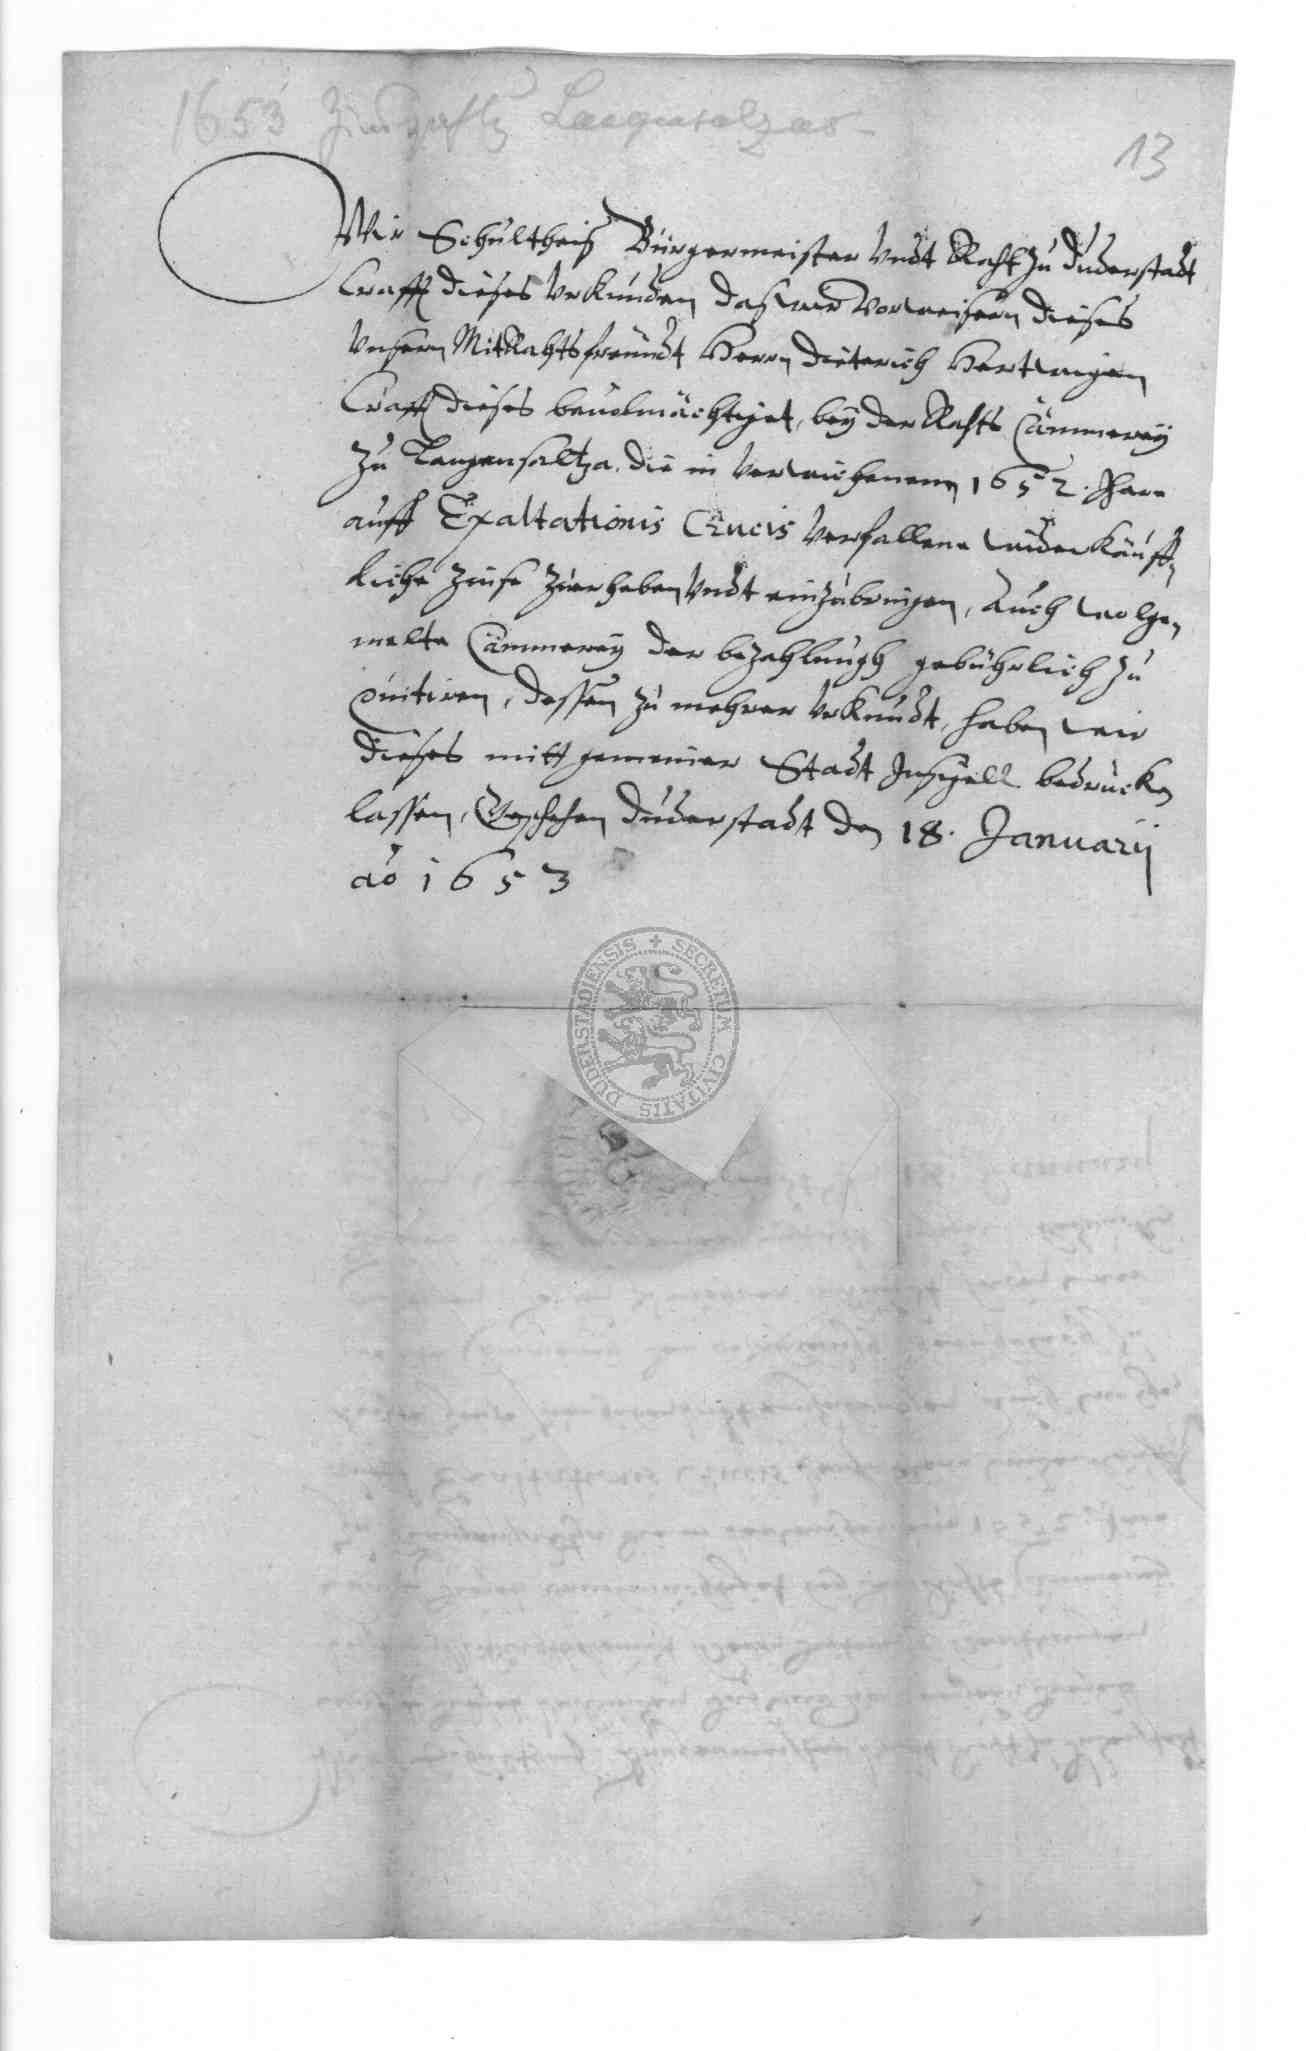 1653 Langensalzas
13
Wir Schultheiß Bürgermeister Vndt Raht zu Duderstadt
Crafft dieses Vrkunden daß wir Vorweisern dieses
Vnsern MitRahtsfreundt Herrn Dieterich Hertwigen
Crafft dieses beuolmächtiget, bey der Rahts Cämmerey
zu Langensaltza die in verwichenem 1652. Jhare
auff Exaltationis Crucis verfallene wiederkäuff-
liche Zinse zuerheben Vndt einzubringen, Auch wolge-
melte Cämmerey der bezahlungh gebührlich zu
quitiren, dessen zu mehrer Vrkundt, haben wir
dieses mitt gemeiner Stadt Insigell bedrucken
lassen, Geschehen Duderstadt den 18. Januarij
ao 1653
SECRETUM CIVITATIS DUDERSTADIENSIS